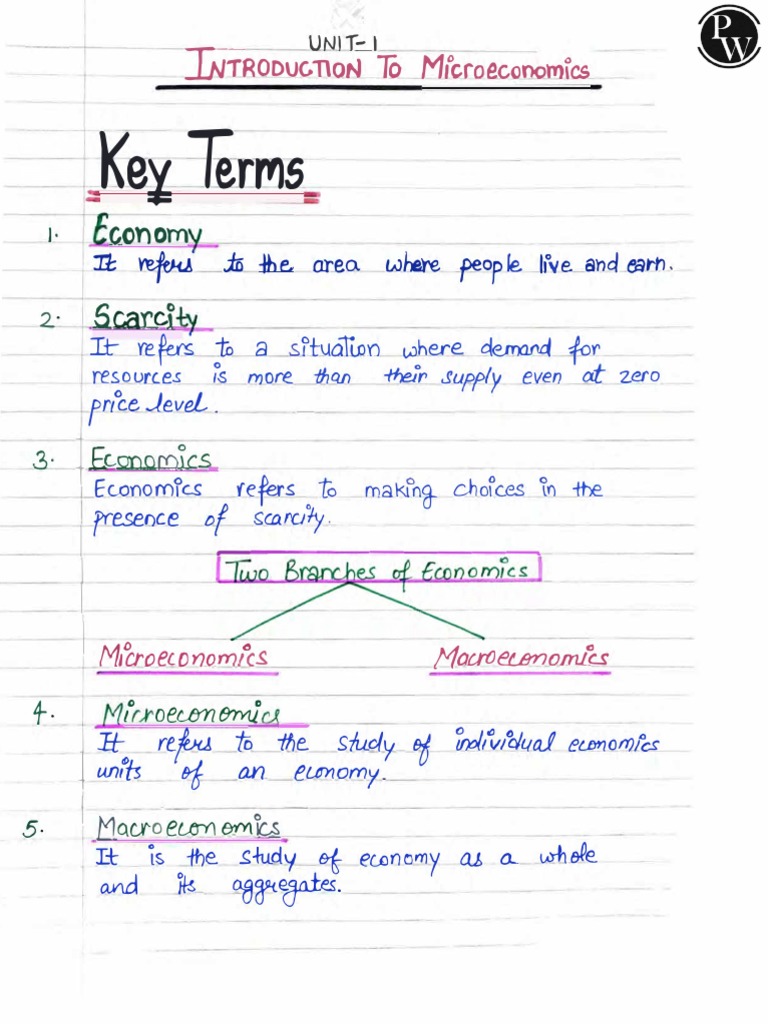 PW
UNIT-1
INTRODUCTION TO Microeconomics
Key Terms
1. Economy
It refers to the area where people live and earn.
2. Scarcity
It refers to a situation where demand for
resources is more than their supply even at zero
price level.
3. Economics
Economics refers to making choices in the
presence of scarcity.
Two Branches of Economics
Microeconomics Macroeconomics
4. Microeconomics
It refers to the study of individual economics
units of an economy.
5. Macroeconomics
It is the study of economy as a whole
and its aggregates.